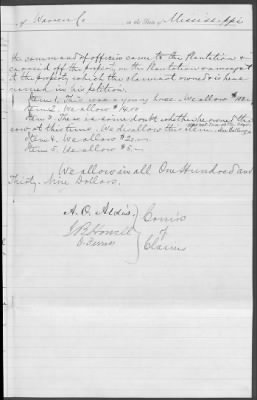 of Warren Co in the State of Mississippi
command of officers came to the Plantation &
carried off the property on the Plantation &
the property which the claimant owned & is here
named in his petition.
Item 1. This was a young horse. We allow $100
Item 2. We allow $4.00
Item 3. There is some doubt whether he owned the
cow at this time. We disallow this item.
Item 4. We allow $20.00
Item 5. We allow $5
We allow in all One Hundred and
Thirty-Nine Dollars.
A. O. Aldis
J. B. Howell
O. Ferriss
Com'rs
of
Claims